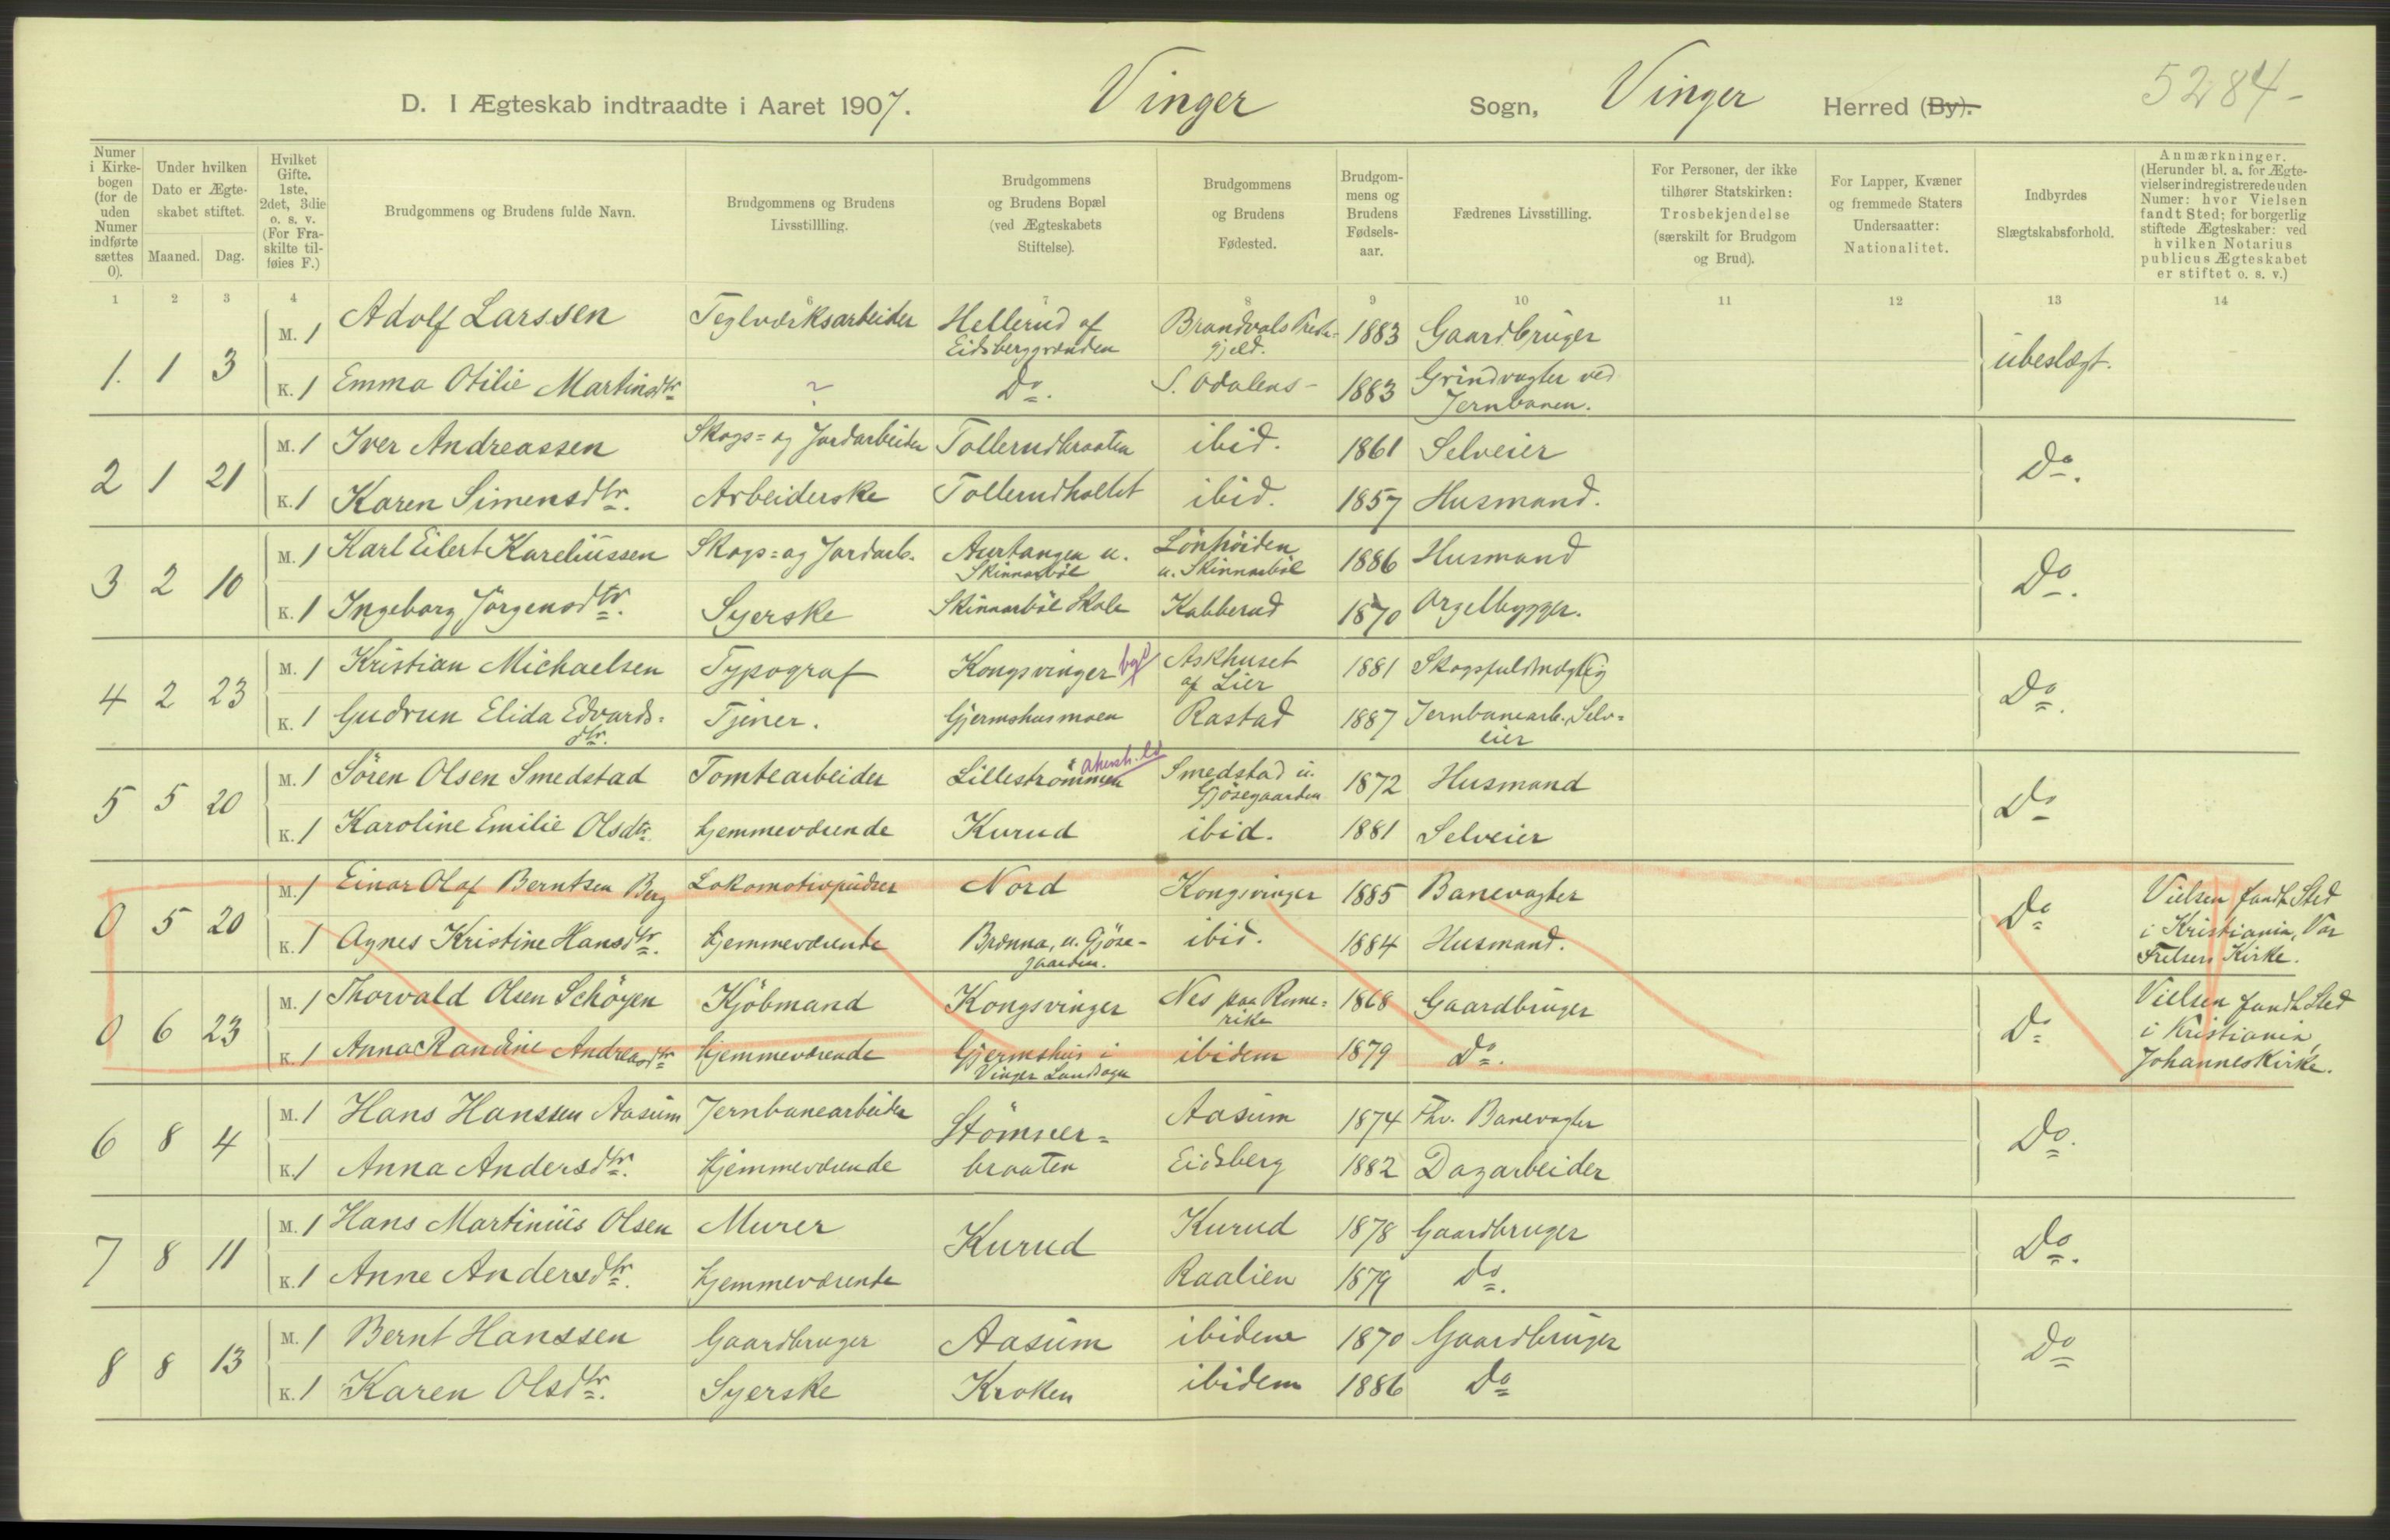 D. I Ægteskab indtraadte i Aaret 1907. Vinger Sogn, Vinger Herred (By). 5284-
Numer i Kirkebogen (for de uden Numer indførte sættes 0).
Under hvilken Dato er Ægteskabet stiftet. Maaned. Dag.
Hvilket Gifte. 1ste, 2det, 3die o. s. v. (For Fraskilte tilføies F.)
Brudgommens og Brudens fulde Navn.
Brudgommens og Brudens Livsstillling.
Brudgommens og Brudens Bopæl (ved Ægteskabets Stiftelse).
Brudgommens og Brudens Fødested.
Brudgommens og Brudens Fødselsaar.
Fædrenes Livsstilling.
For Personer, der ikke tilhører Statskirken: Trosbekjendelse (særskilt for Brudgom og Brud).
For Lapper, Kvæner og fremmede Staters Undersaatter: Nationalitet.
Indbyrdes Slægtskabsforhold.
Anmærkninger. (Herunder bl. a. for Ægtevielser indregistrerede uden Numer: hvor Vielsen fandt Sted; for borgerlig stiftede Ægteskaber: ved hvilken Notarius publicus Ægteskabet er stiftet o. s. v.)
1 2 3 4 6 7 8 9 10 11 12 13 14
1. 1 3 M. 1 Adolf Larssen Teglværksarbeider Hellerud af Eidsberggrænden Brandvals Præstegjeld. 1883 Gaardbruger ubeslægt.
K. 1 Emma Otilie Martinsdtr ~ Do. S. Odalens - 1883 Grindvagter ved Jernbanen.
2 1 21 M. 1 Iver Andreassen Skogs= og Jordarbeider Tollerudbraaten ibid. 1861 Selveier Do.
K. 1 Karen Simensdtr. Arbeiderske Tollerudholtet ibid. 1857 Husmand.
3 2 10 M. 1 Karl Eilert Kareliussen Skogs= og Jordarb. Aurtangen u. Skinnarböl Lönhöiden u. Skinnarböl 1886 Husmand Do.
K. 1 Ingeborg Jörgensdtr. Syerske Skinnarböl Skole Kabberud 1870 Orgelbygger.
4 2 23 M. 1 Kristian Michaelsen Typograf Kongsvinger by Askhuset af Lier 1881 Skogsfuldmægtig Do.
K. 1 Gudrun Elida Edvards=dtr. Tjener. Gjermshusmoen Rastad 1887 Jernbanearb., Selv=eier
5 5 20 M. 1 Sören Olsen Smedstad Tomtearbeider Lilleströmmen Smedstad u. Gjösegaarden 1872 Husmand Do
K. 1 Karoline Emilie Olsdtr. hjemmeværende Kurud ibid. 1881 Selveier
0 5 20 M. 1 Einar Olaf Berntsen Berg Lokomotivpudser Nord Kongsvinger 1885 Banevagter Do Vielsen fandt Sted i Kristiania, Vor Frelsers Kirke.
K. 1 Agnes Kristine Hansdtr. hjemmeværende Brænna, u. Gjöse-gaarden. ibid. 1884 Husmand.
0 6 23 M. 1 Thorvald Olsen Schöyen Kjöbmand Kongsvinger Nes paa Rome=rike 1868 Gaardbruger Do Vielsen fandt Sted i Kristiania, Johanneskirke.
K. 1 Anna Randine Andreasdtr hjemmeværende Gjermshus i Vinger Landsogn ibidem 1879 Do.
6 8 4 M. 1 Hans Hanssen Aasum Jernbanearbeider Stömner=braaten Aasum 1874 Fhv. Banevagter Do.
K. 1 Anna Andersdtr. hjemmeværende Eidsberg 1882 Dagarbeider
7 8 11 M. 1 Hans Martinius Olsen Murer Kurud Kurud 1878 Gaardbruger Do.
K. 1 Anne Andersdtr. hjemmeværende Raalien 1879 Do.
8 8 13 M. 1 Bernt Hanssen Gaardbruger Aasum ibidem 1870 Gaardbruger Do
K. 1 Karen Olsdtr. Syerske Kroken ibidem 1886 Do